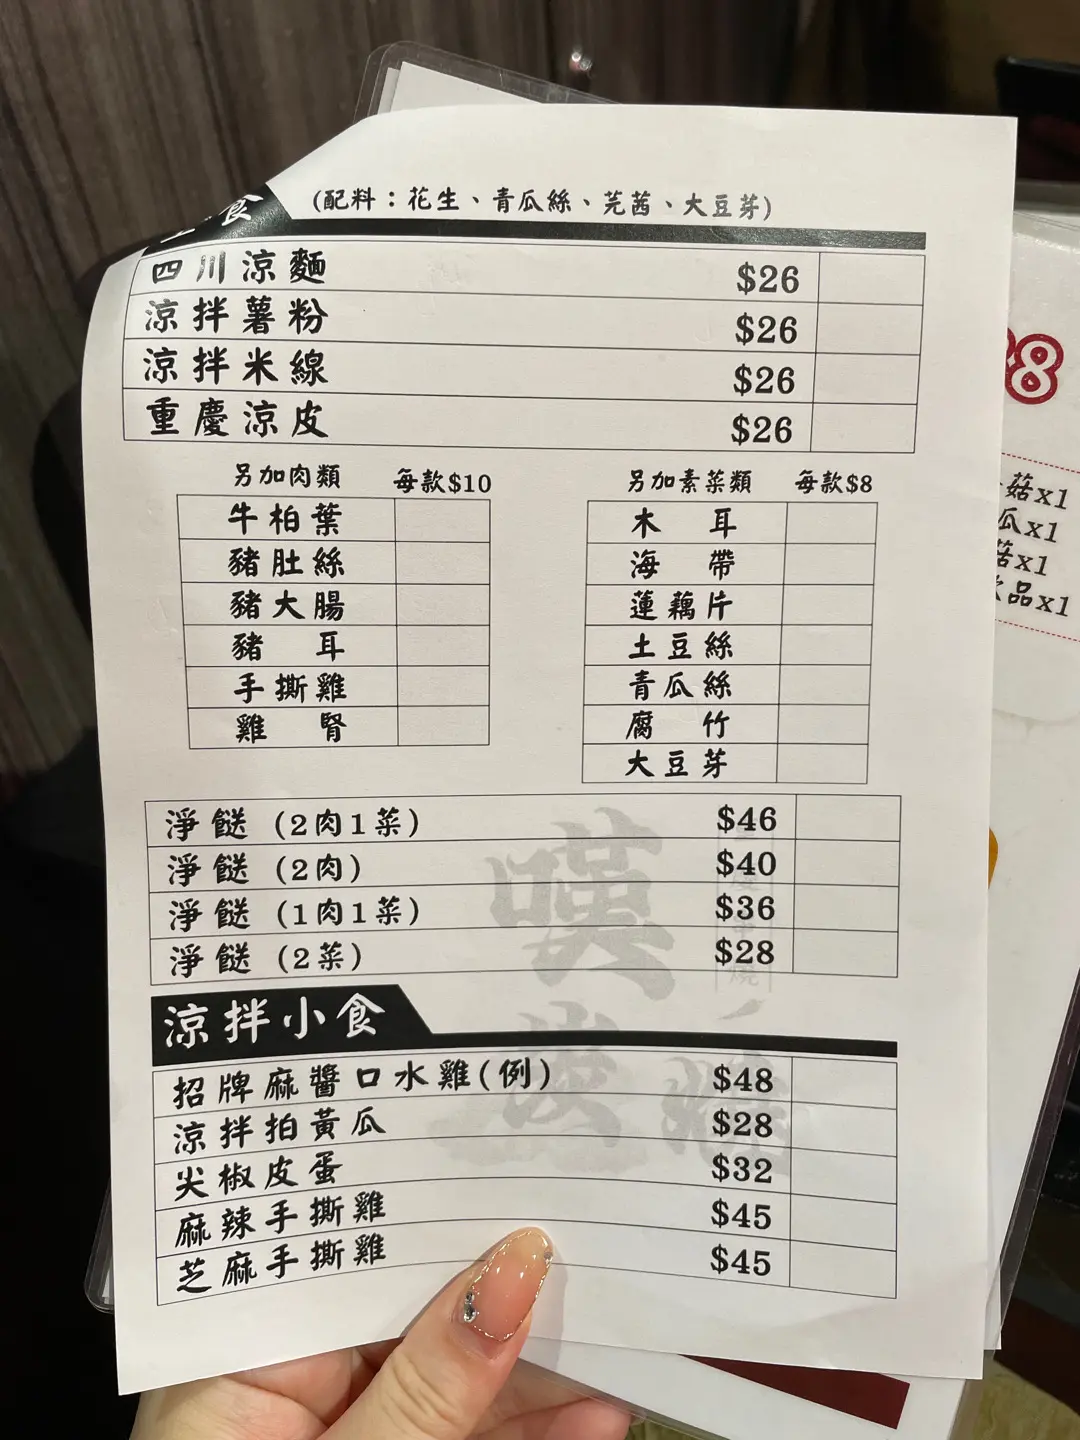 食
(配料：花生、青瓜絲、芫茜、大豆芽)
四川涼麵 $26
涼拌薯粉 $26
涼拌米線 $26
重慶涼皮 $26
另加肉類 每款$10
牛柏葉
豬肚絲
豬大腸
豬耳
手撕雞
雞腎
另加素菜類 每款$8
木耳
海帶
蓮藕片
土豆絲
青瓜絲
腐竹
大豆芽
淨餸 (2肉1菜) $46
淨餸 (2肉) $40
淨餸 (1肉1菜) $36
淨餸 (2菜) $28
涼拌小食
招牌麻醬口水雞(例) $48
涼拌拍黃瓜 $28
尖椒皮蛋 $32
麻辣手撕雞 $45
芝麻手撕雞 $45
8
菇x1
瓜x1
菇x1
品x1
嘆